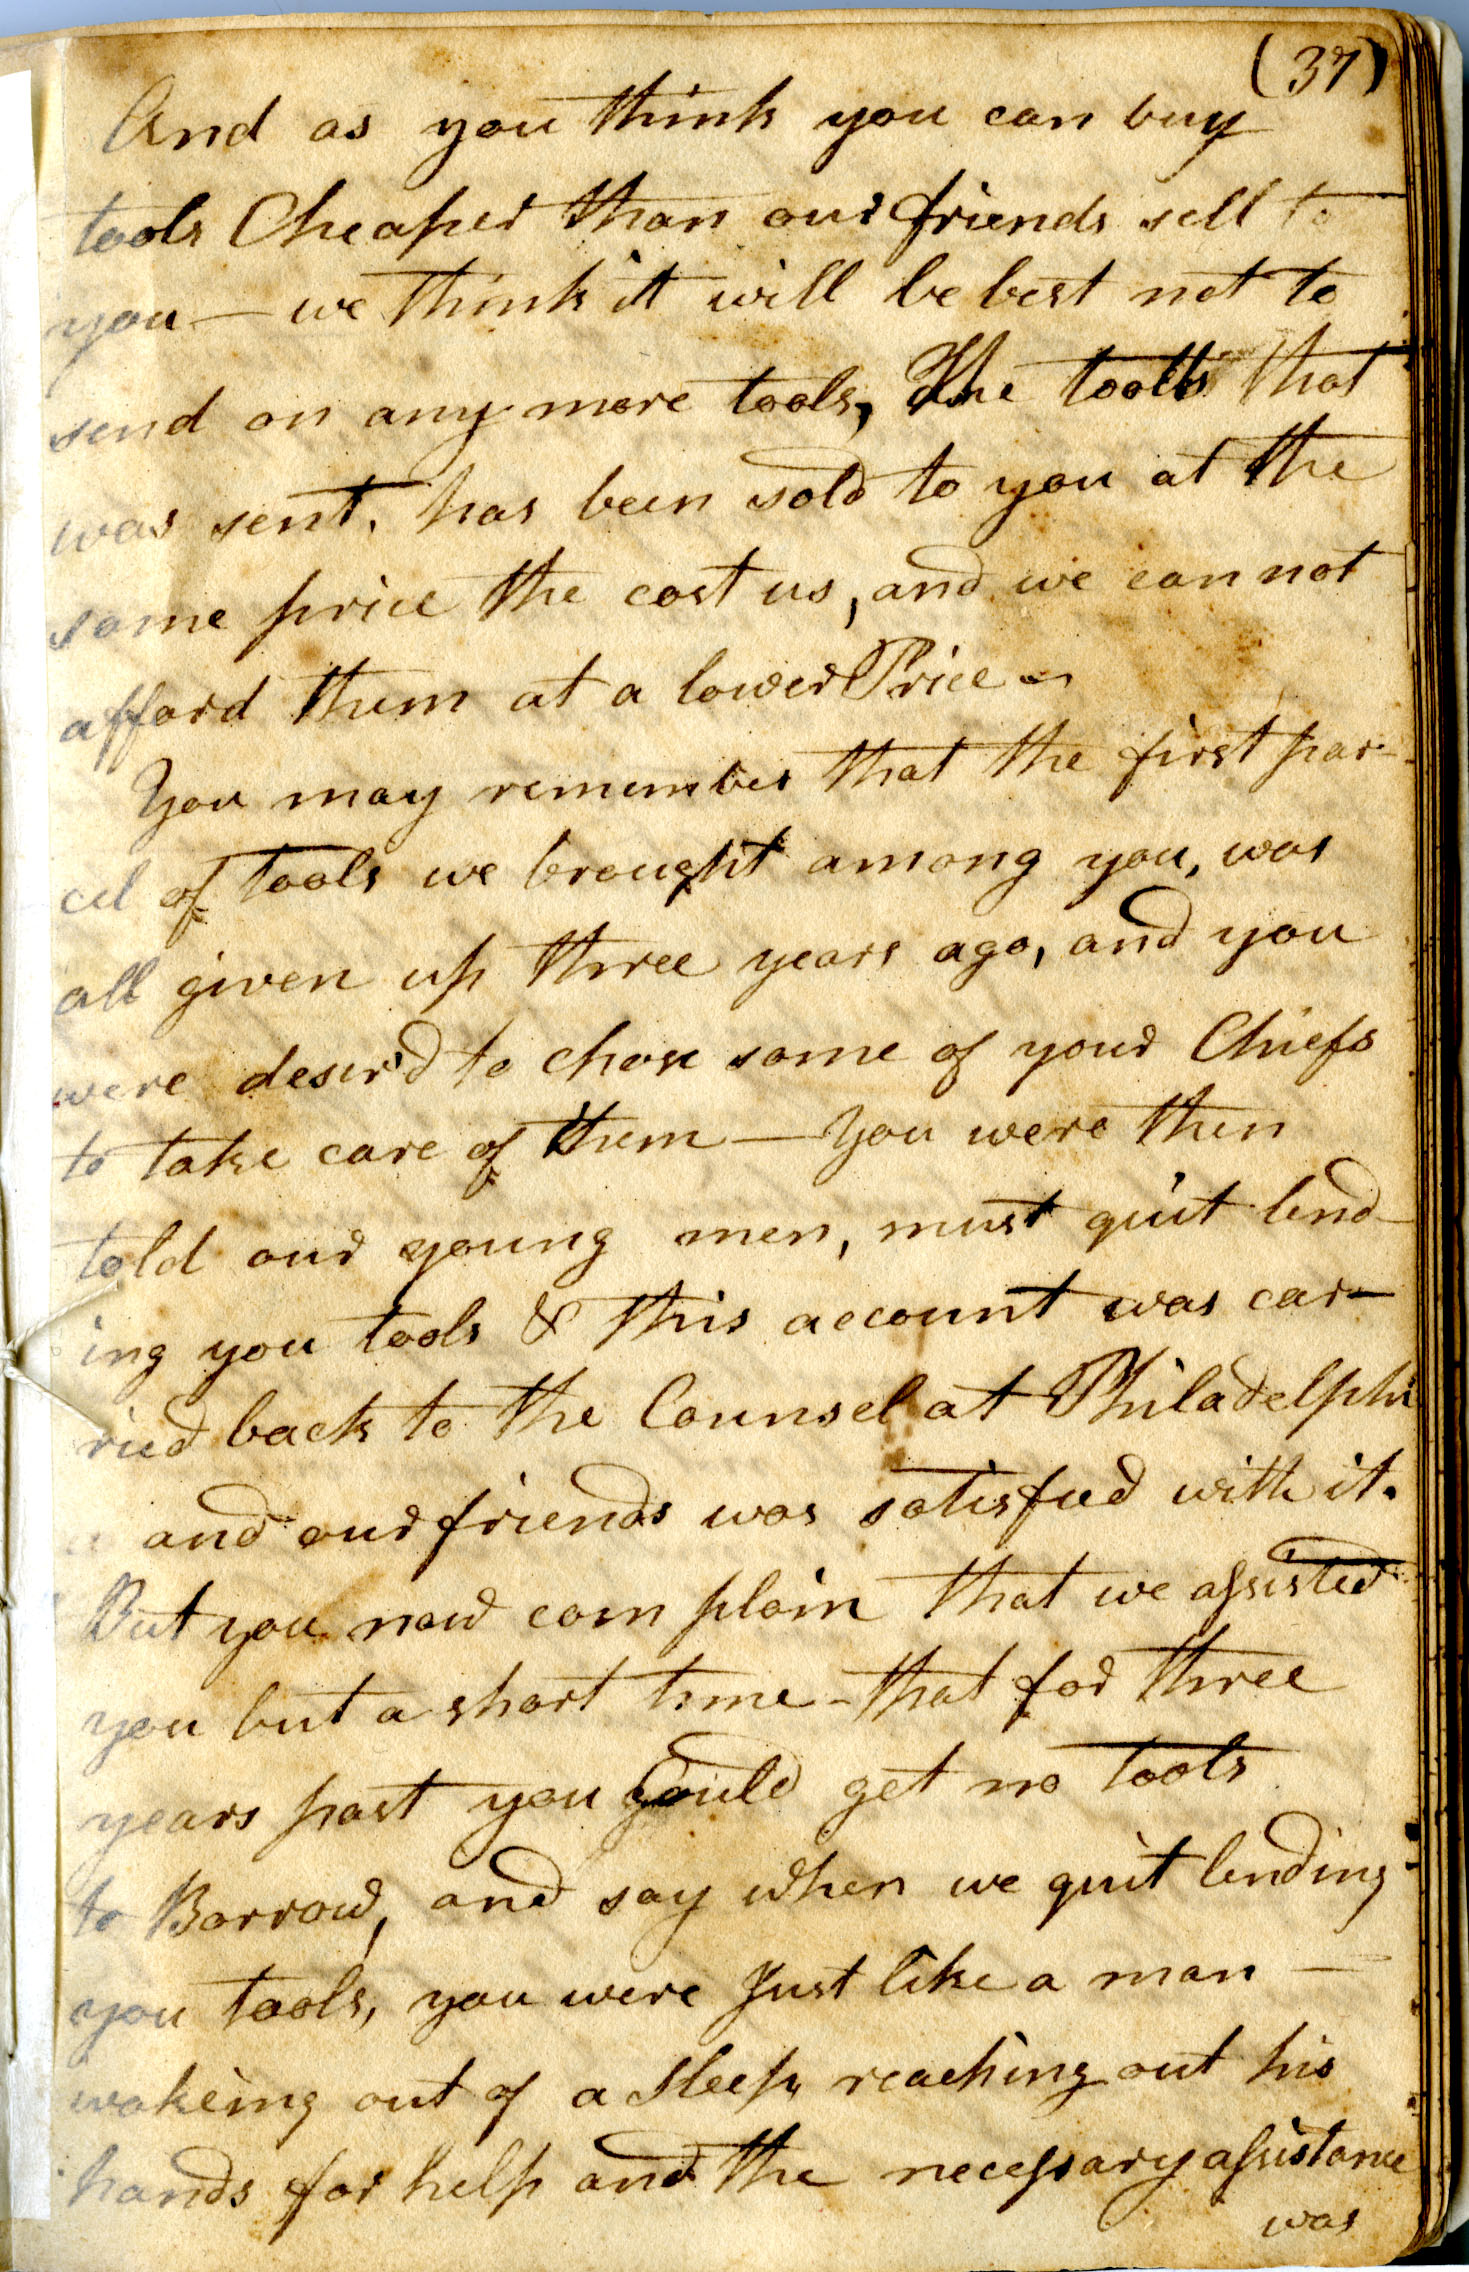 (37)
And as you think you can buy
tools Cheaper than our friends sell to
you — we think it will be best not to
send on any more tools, The tools that
was sent, has been sold to you at the
same price the cost us, and we can not
afford them at a lower Price —
You may remember that the first par-
cel of tools we brought among you, was
all given up three years ago, and you
were desir'd to chose some of your Chiefs
to take care of them — You were then
told our young men, must quit lend-
ing you tools & this account was car-
ried back to the Counsel at Philadelphi
a and our friends was satisfied with it.
But you now complain that we assisted
you but a short time - that for three
years past you Could get no tools
to Borrow, and say when we quit lending
you tools, you were Just like a man —
wakeing out of a Sleep, reaching out his
hands for help and the necessary assistance
was